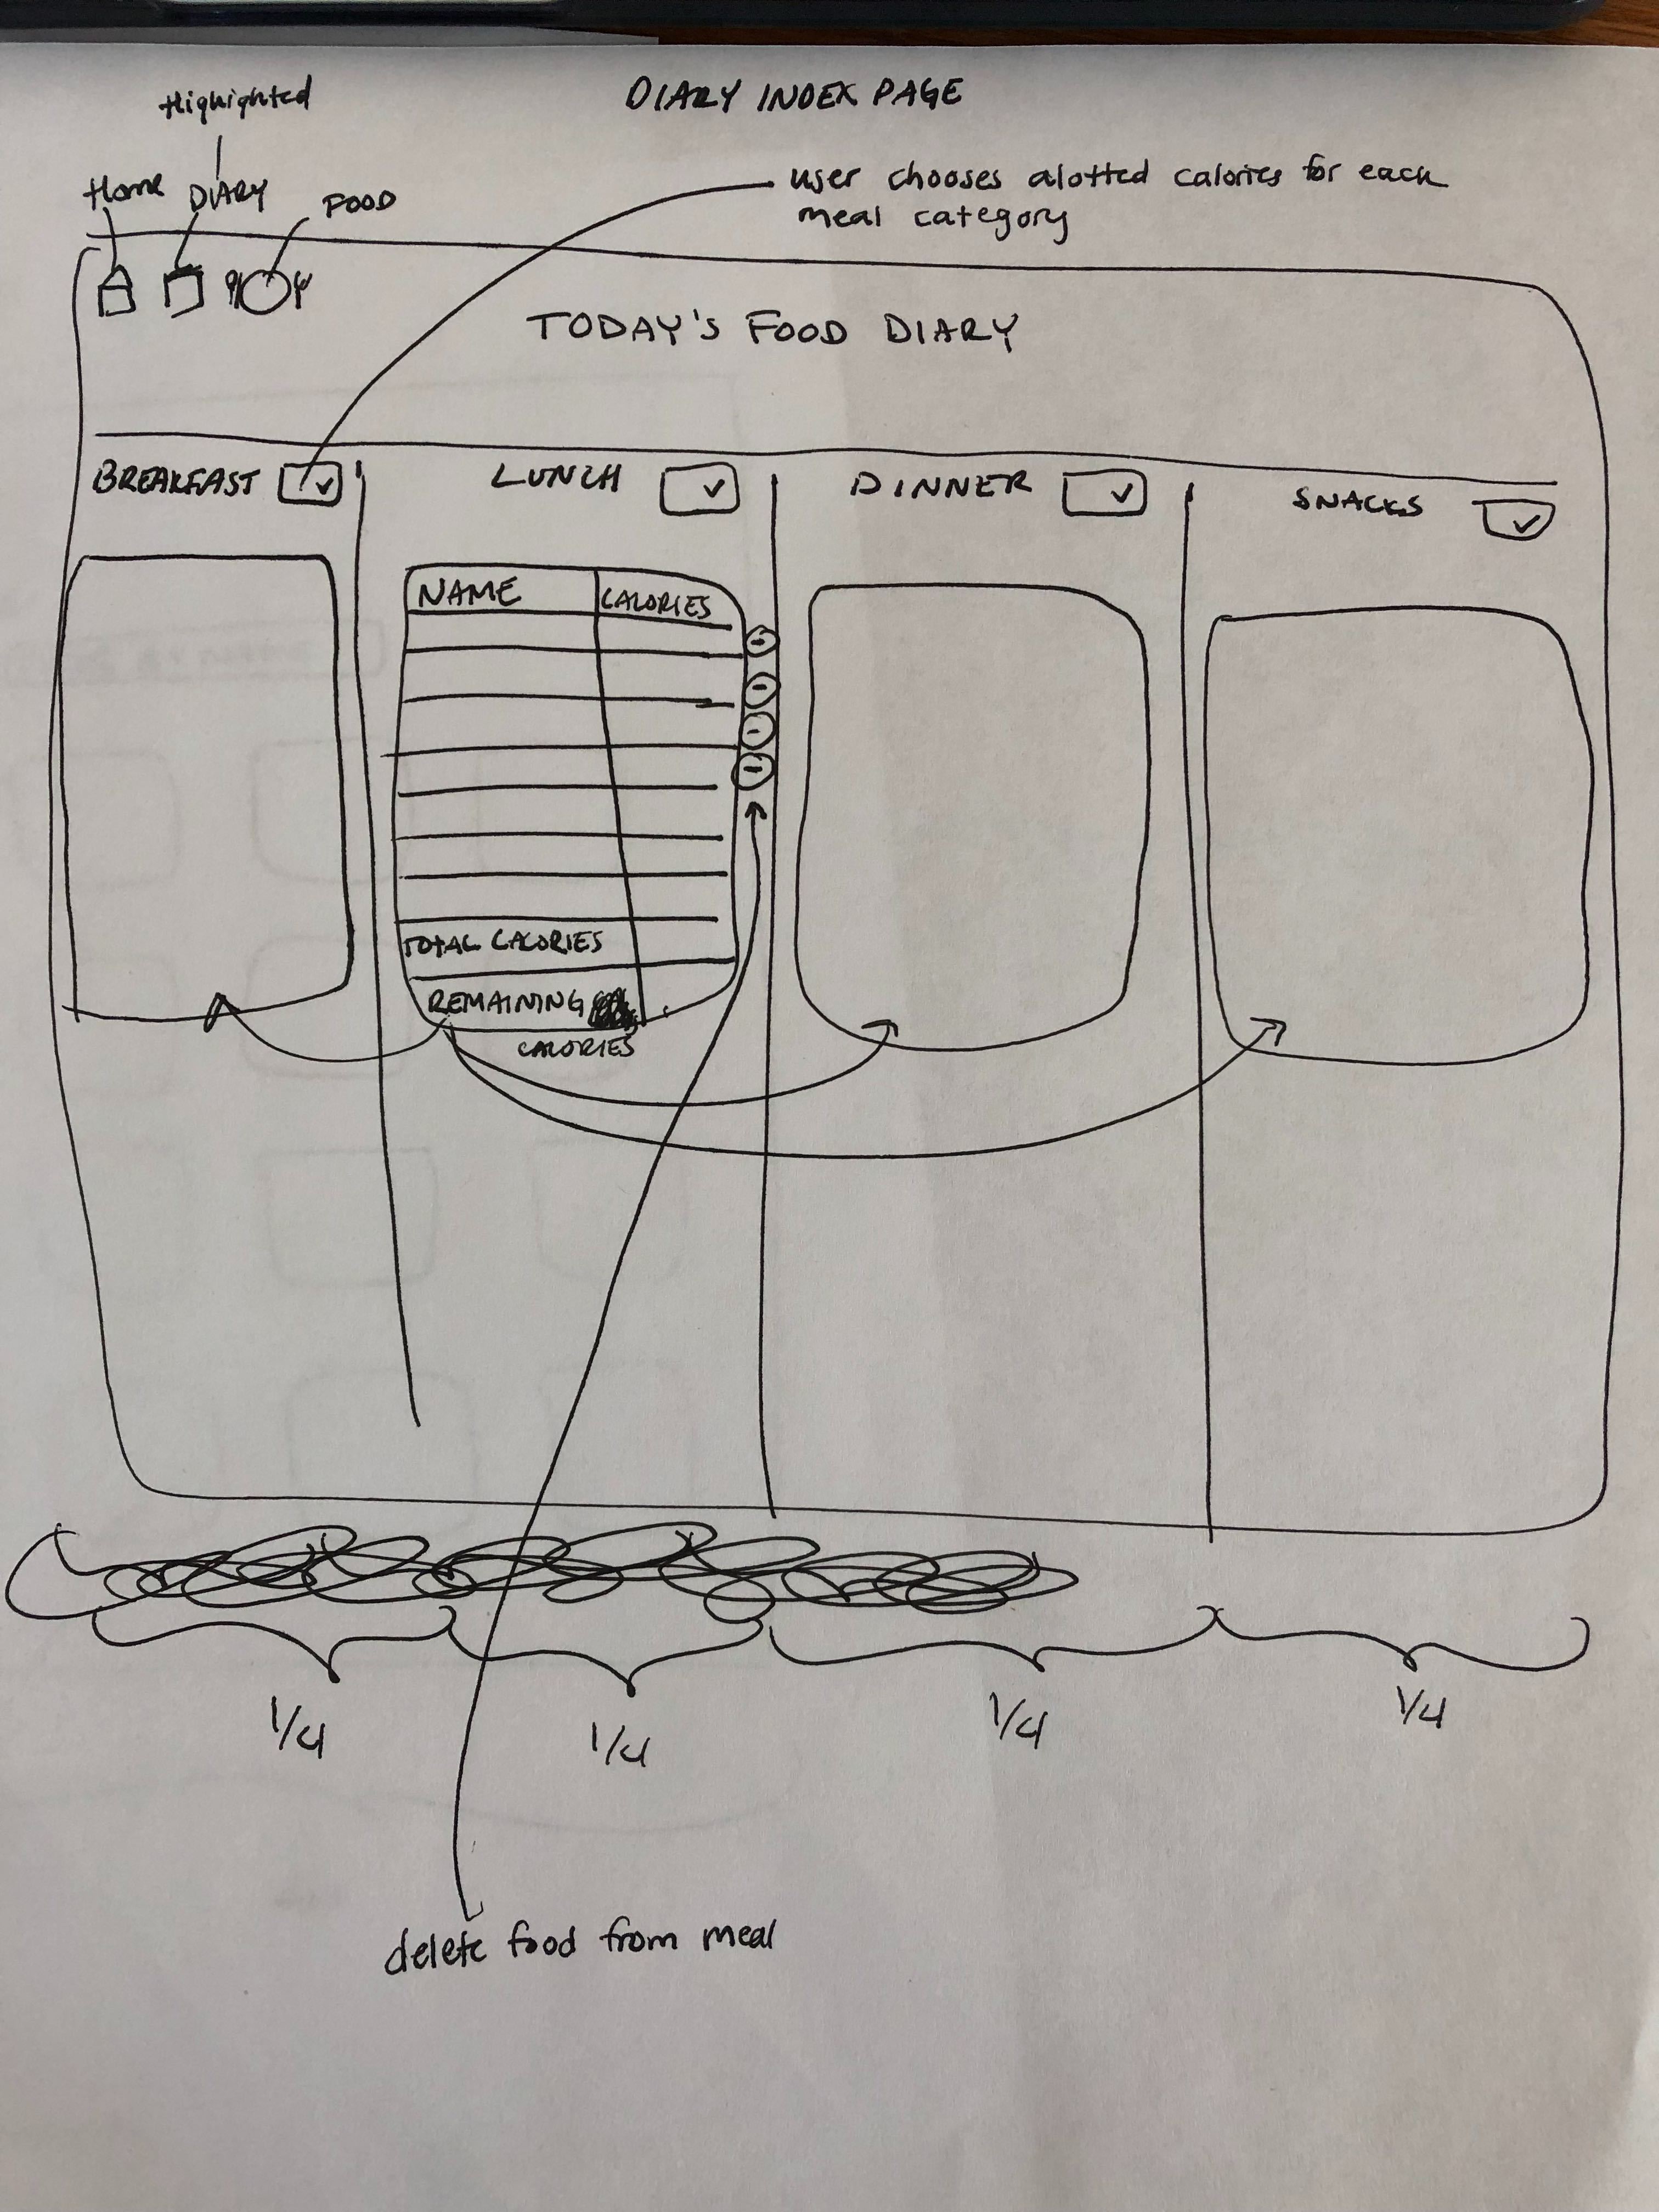 DIARY INDEX PAGE
Highighted
Home DIARY FOOD
user chooses alotted calories for each
meal category
TODAY'S FOOD DIARY
BREAKFAST LUNCH DINNER SNACKS
NAME CALORIES
-
-
-
-
TOTAL CALORIES
REMAINING
CALORIES
1/4 1/4 1/4 1/4
delete food from meal